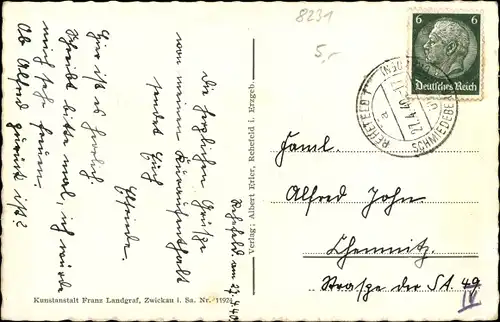 8231
5,-
Rehefeld, am 27.4.40
Die herzlichen Grüße
von meinem Kuraufenthalt
sendet Euch
Elfriede.
Hier ist es herrlich.
Schreibt bitte mal, ich würde
mich sehr freuen.
Ob Alfred zurück ist?
Verlag: Albert Erler, Rehefeld i. Erzgeb.
Kunstanstalt Franz Landgraf, Zwickau i. Sa. Nr. 11924
6 6
Deutsches Reich
REHEFELD
SCHMIEDEBERG
27.4.40
a
Faml.
Alfred John
Chemnitz
Straße der SA. 49
IV